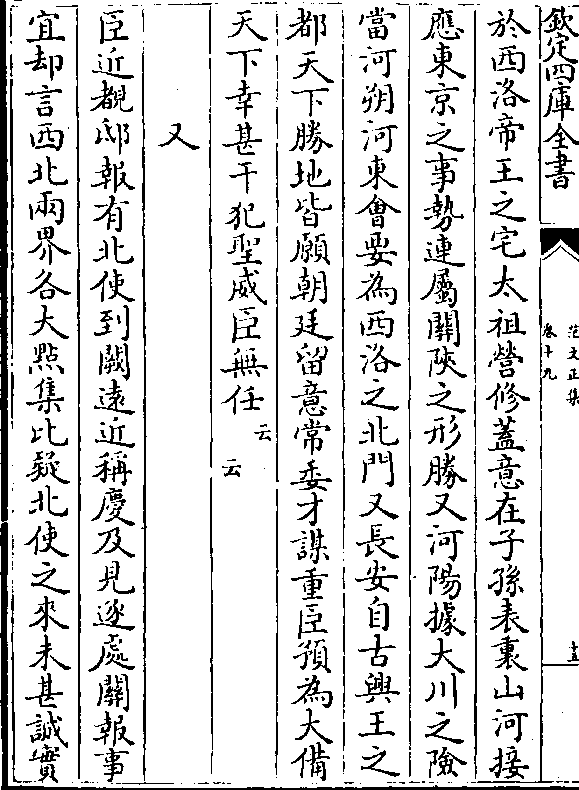 欽定四庫全書
范文正集
卷十九
於西洛帝王之宅太祖營修蓋意在子孫表裏山河接
應東京之事勢連屬關陝之形勝又河陽據大川之險
當河朔河東會要為西洛之北門又長安自古興王之
都天下勝地皆願朝廷留意常委才謀重臣預為大備
天下幸甚干犯聖威臣無任云云
又
臣近覩邸報有北使到闕遠近稱慶及見逐處關報事
宜却言西北兩界各大點集比疑北使之來未甚誠實